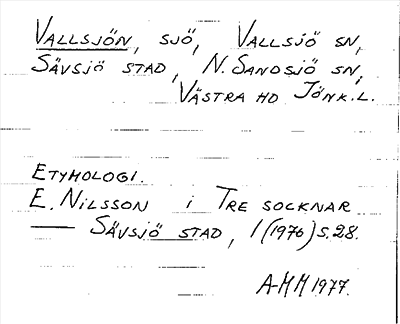 VALLSJÖN, SJÖ, VALLSJÖ SN,
SÄVSJÖ STAD, N. SANDSJÖ SN,
VÄSTRA HD JÖNK.L.
ETYMOLOGI.
E. NILSSON i TRE SOCKNAR
— SÄVSJÖ STAD, 1 (1976) S. 28.
A-MM 1977.